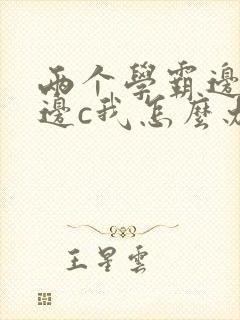 两个學霸邊
邊c我怎麼办
王星雲